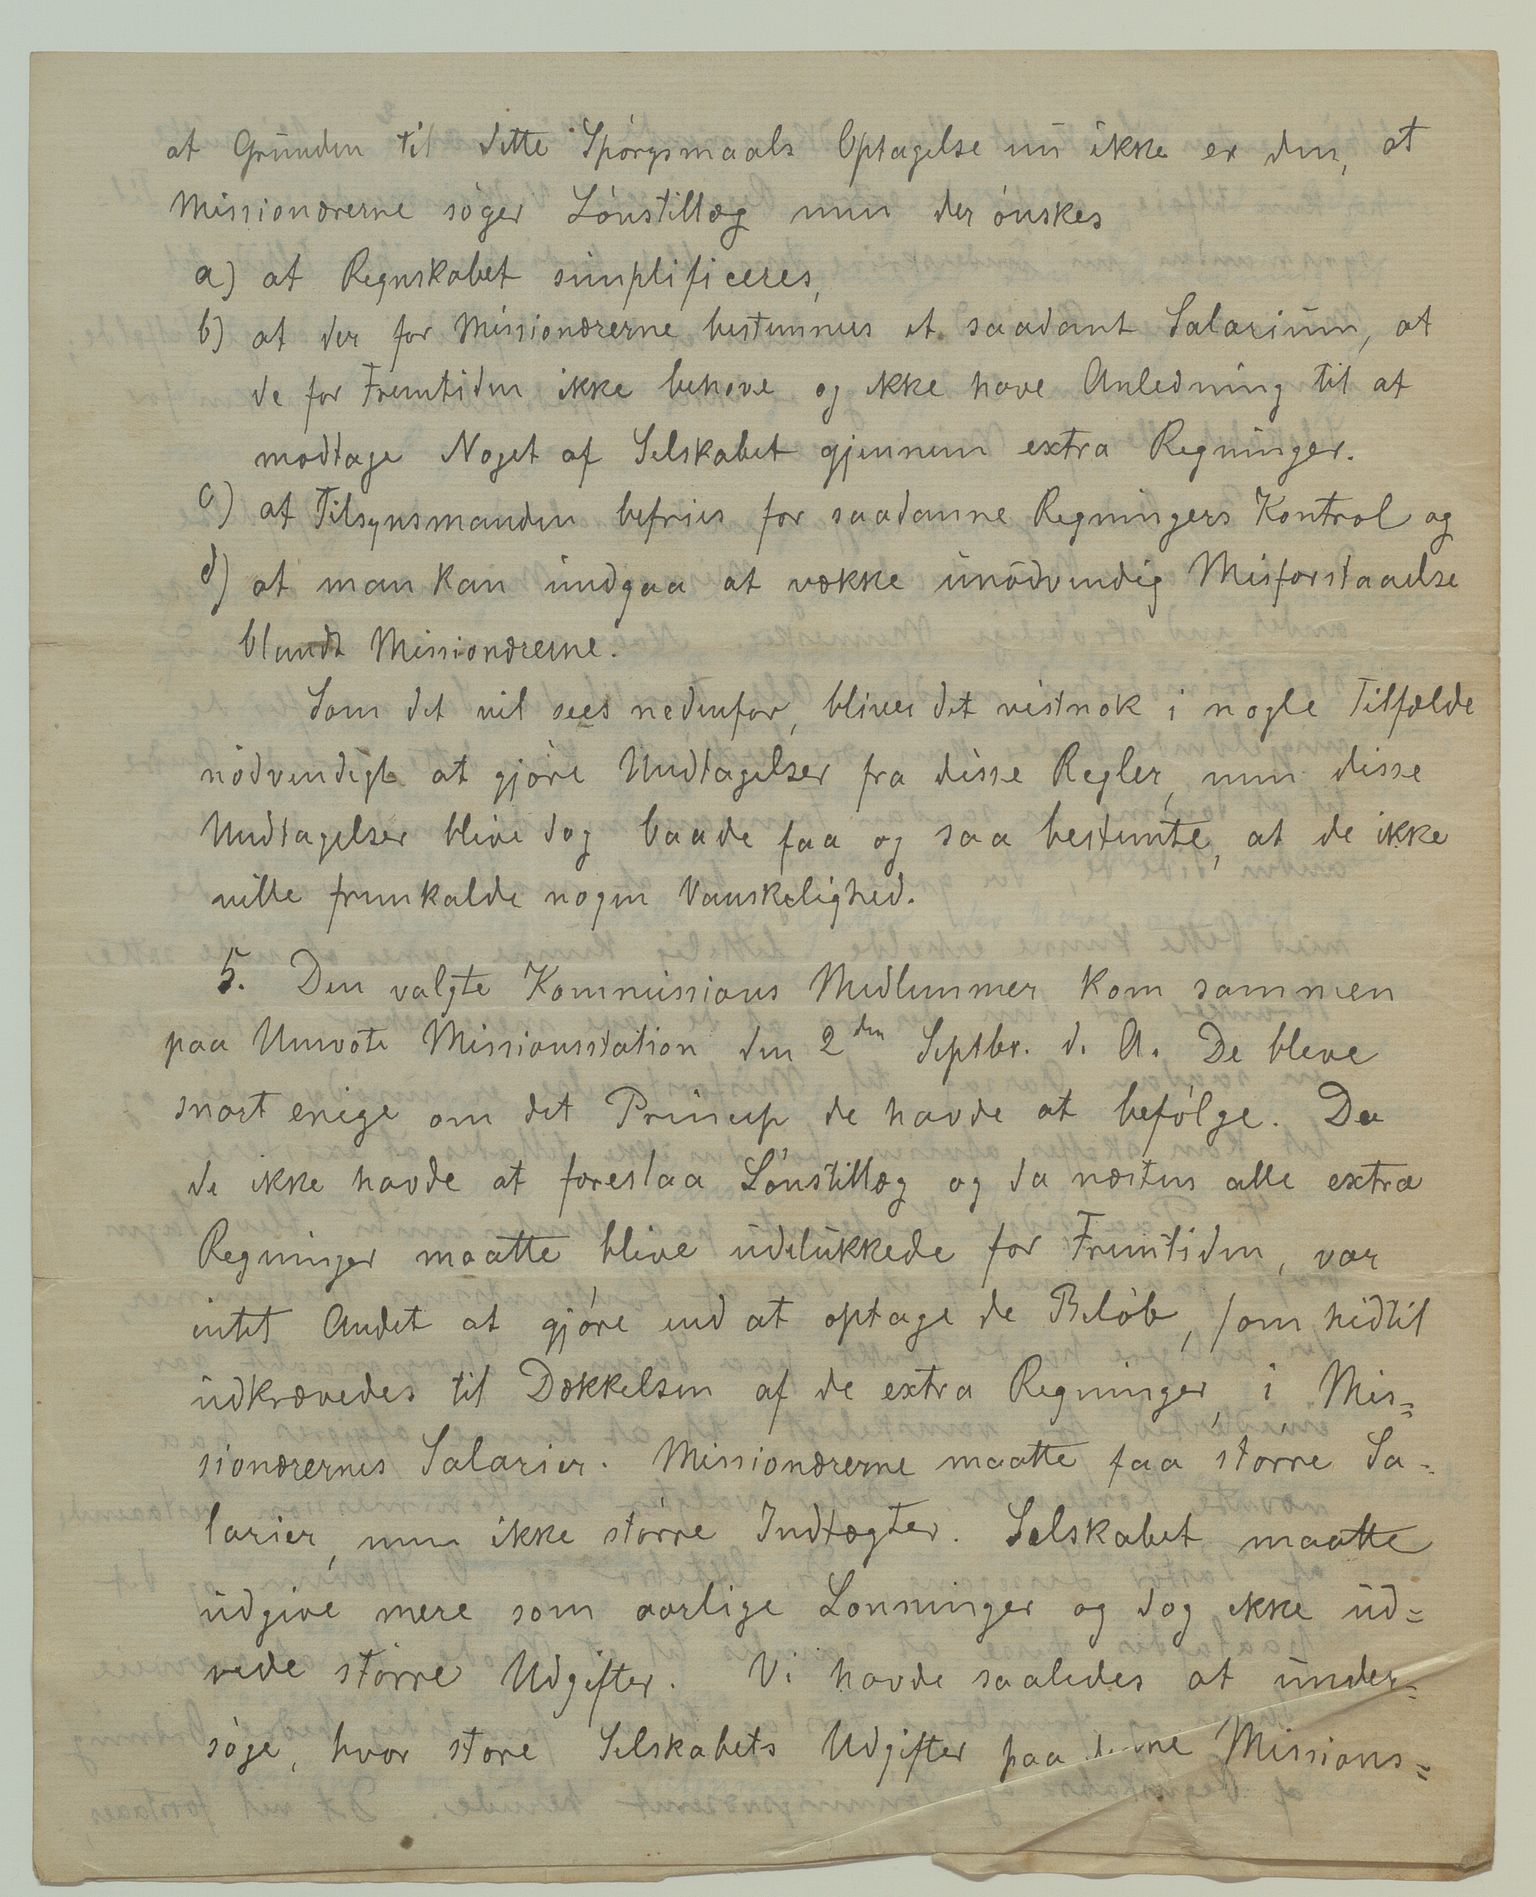 at Grunden til dette Spörgsmaals Optagelse nu ikke er den, at
Missionærerne söger Lönstillæg men der önskes
a) at Regnskabet simplificeres,
b) at der for Missionærerne bestemmes et saadant Salarium, at
de for Fremtiden ikke behøve og ikke have Anledning til at
modtage Noget af Selskabet gjennem extra Regninger.
c) at Tilsynsmanden befries for saadanne Regningers Kontrol og
d) at man kan undgaa at vække unödvendig Misforstaaelse
blandt Missionærerne.
Som det vil sees nedenfor, bliver det vistnok i nogle Tilfælde
nödvendigt at gjöre Undtagelser fra disse Regler, men disse
Undtagelser blive dog baade faa og saa bestemte, at de ikke
ville fremkalde nogen Vanskelighed.
5. Den valgte Kommissions Medlemmer kom sammen
paa Umvoti Missionsstation den 2den Septbr. d. A. De bleve
snart enige om det Princip de havde at befölge. Da
de ikke havde at foreslaa Lönstillæg og da næsten alle extra
Regninger maatte blive udelukkede for Fremtiden, var
intet Andet at gjöre end at optage de Belöb, som hidtil
udkrævedes til Dækkelsen af de extra Regninger, i Mis=
sionærernes Salarier. Missionærerne maatte faa större Sa-
larier, men ikke större Indtægter. Selskabet maatte
udgive mere som aarlige Lönninger og dog ikke ud=
rede större Udgifter. Vi havde saaledes at under=
söge, hvor store Selskabets Udgifter paa denne Missions=